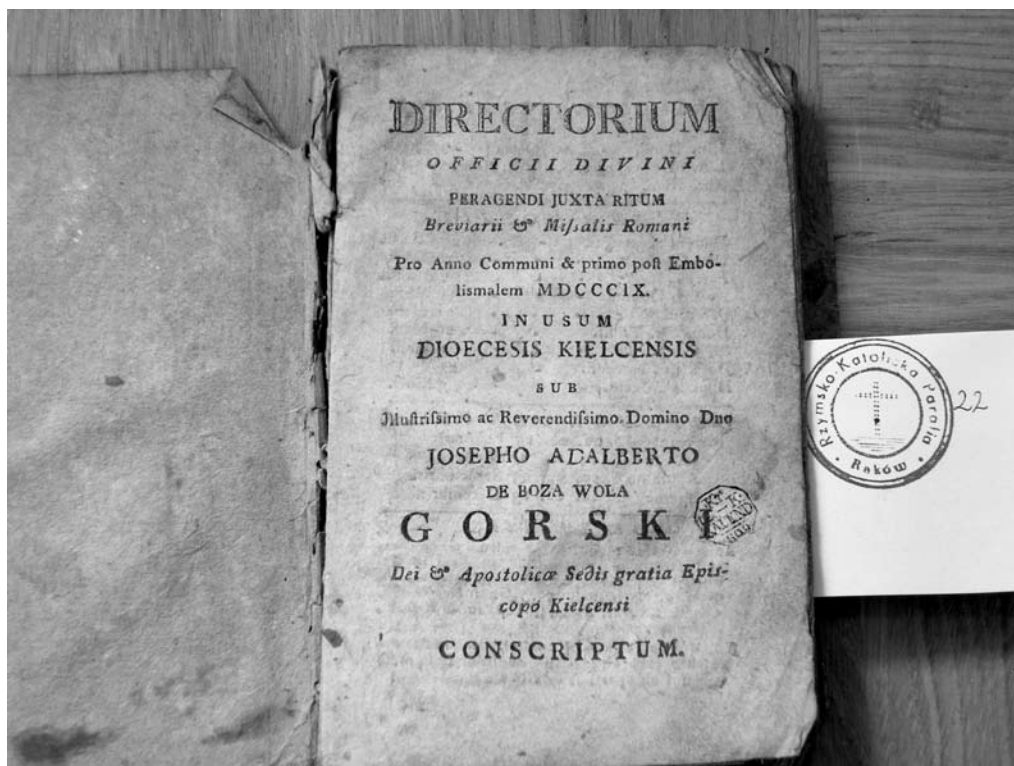 DIRECTORIUM
OFFICII DIVINI
PERAGENDI JUXTA RITUM
Breviarii & Miſsalis Romani
Pro Anno Communi & primo poſt Embo-
lismalem MDCCCIX.
IN USUM
DIOECESIS KIELCENSIS
SUB
Jlluſtriſsimo ac Reverendiſsimo Domino Dno
JOSEPHO ADALBERTO
DE BOZA WOLA
GORSKI
Dei & Apostolicæ Sedis gratia Epis-
copo Kielcensi
CONSCRIPTUM.
Rzymsko-Katolicka Parafia
Raków
22